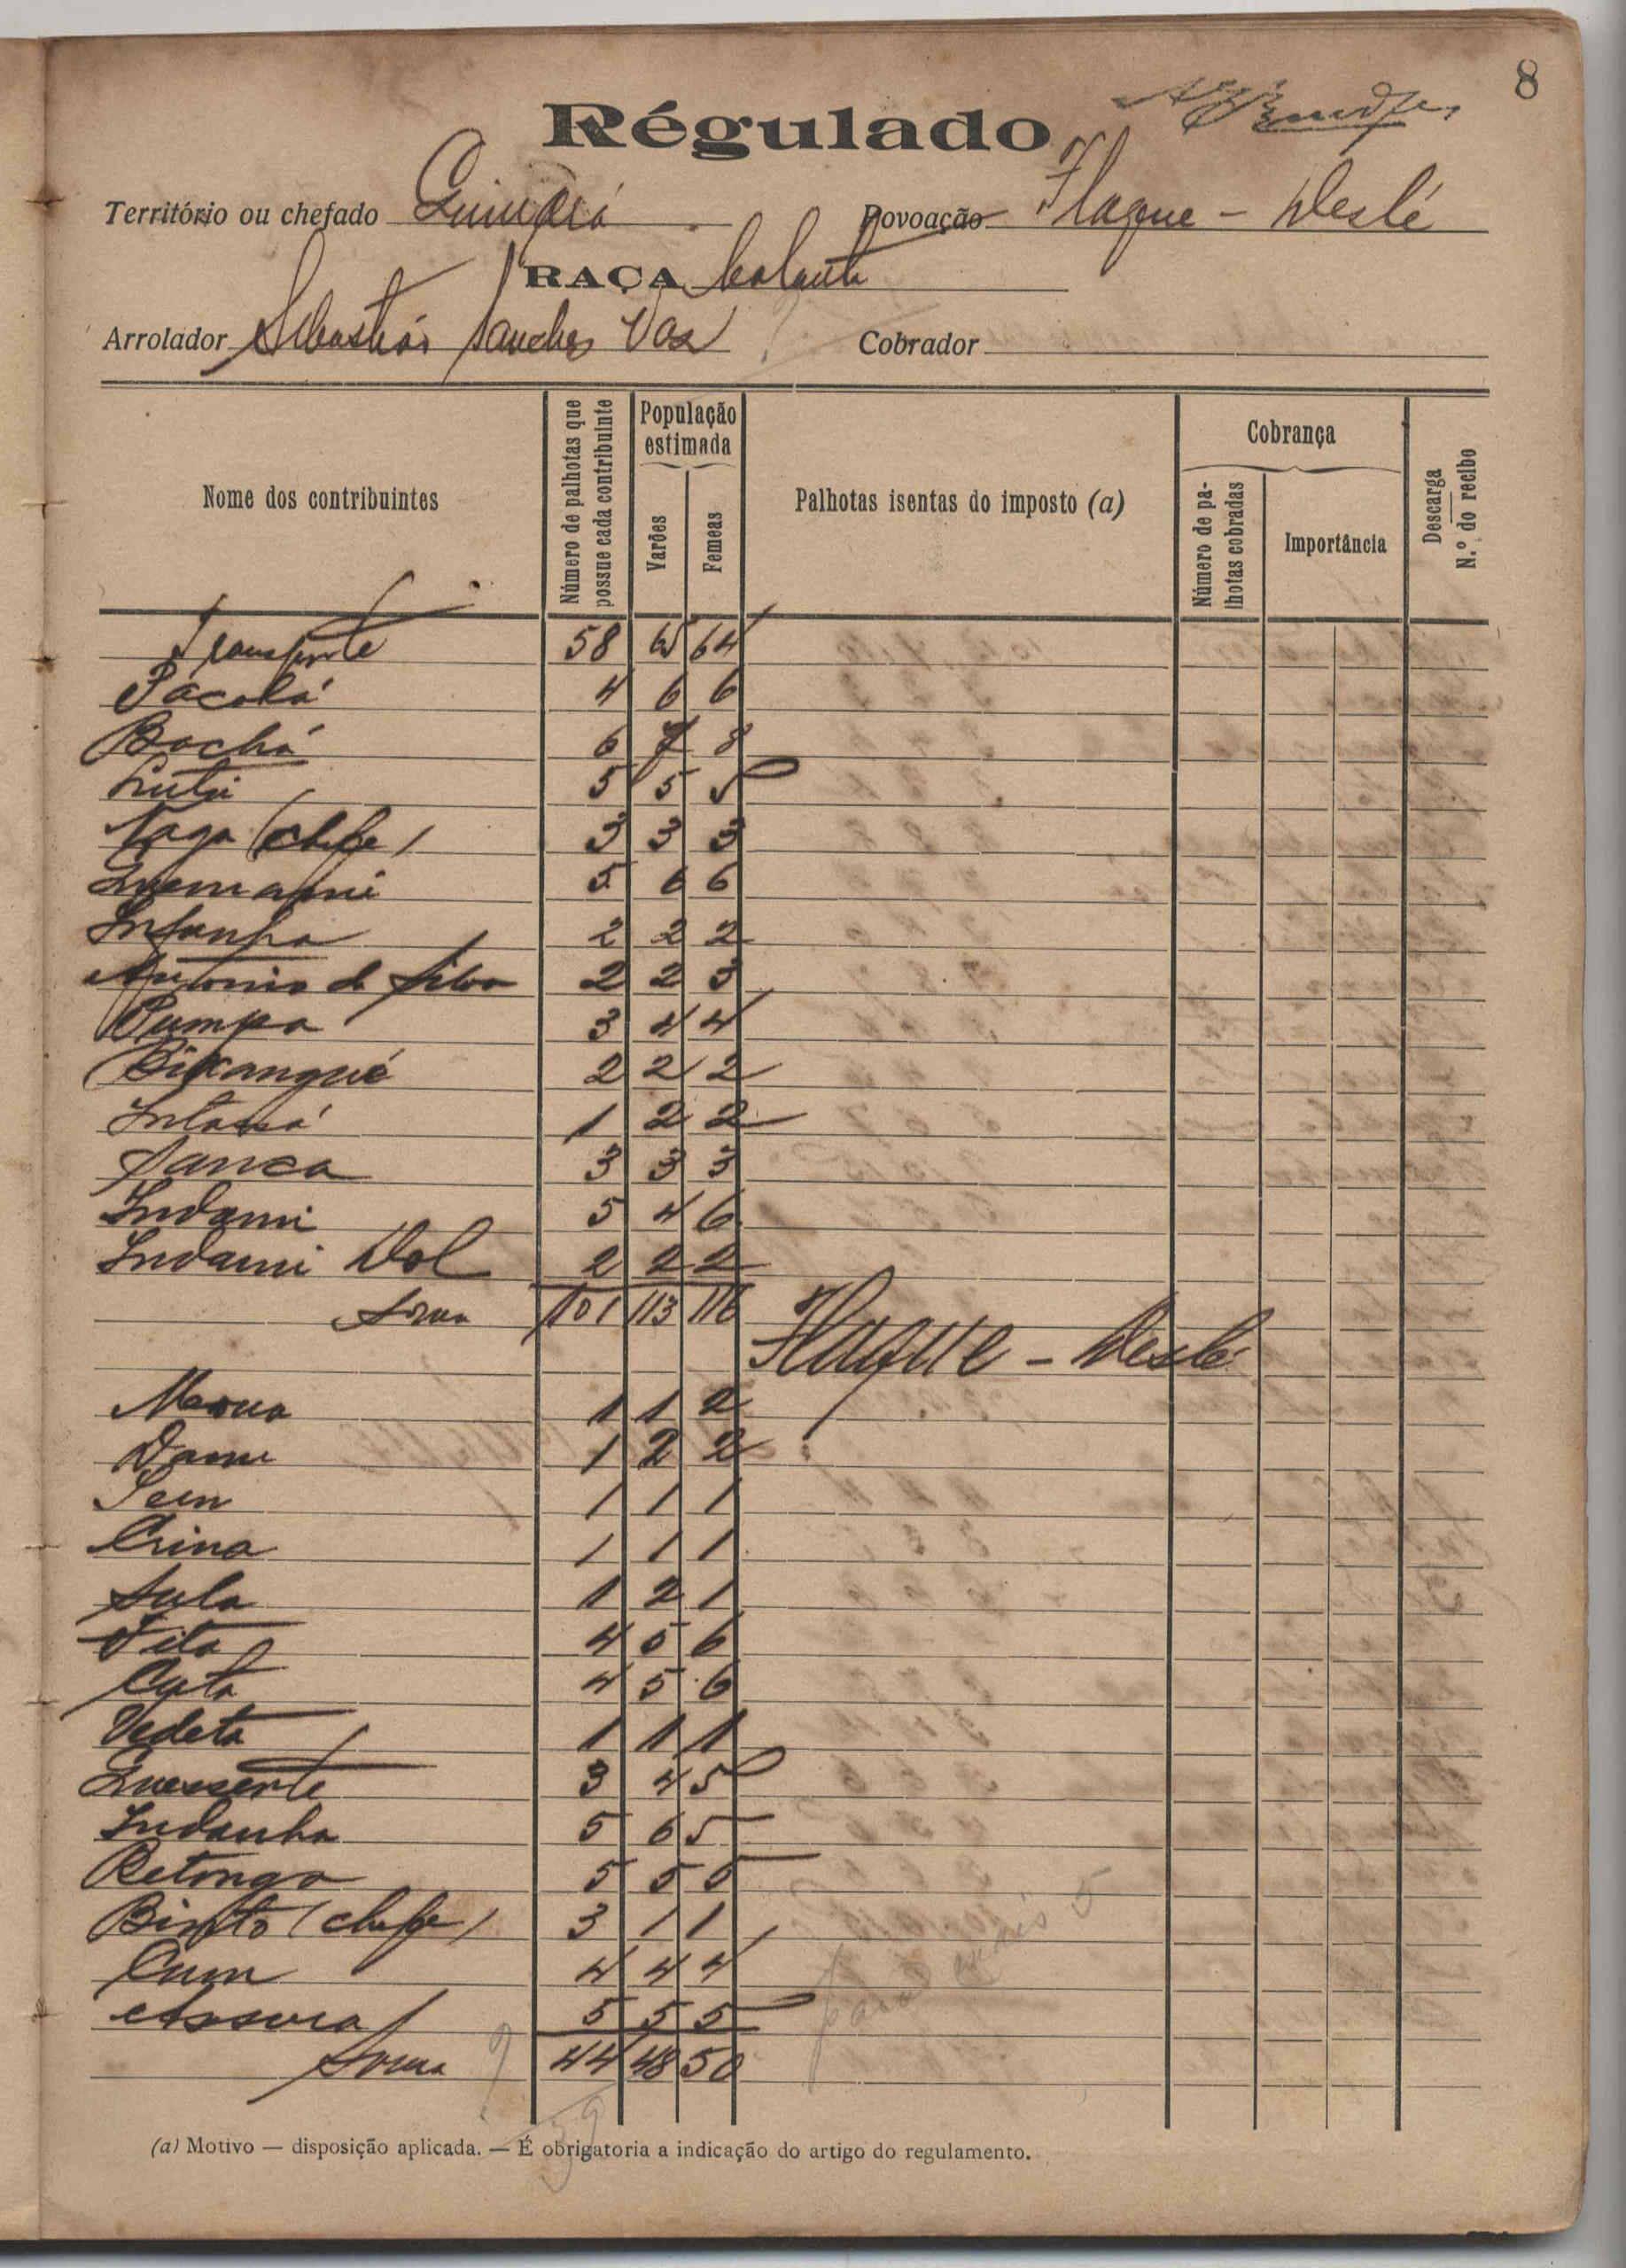 8
Régulado
Território ou chefado Povoação Flaque - Deslé
RAÇA balanta
Arrolador Sebastião Sanches Vaz Cobrador
Nome dos contribuintes Número de palhotas que possue cada contribuinte População estimada Varões Femeas Palhotas isentas do imposto (a) Cobrança Número de palhotas cobradas Importância Descarga N.º do recibo
Transporte 58 65 64
Pácolá 4 6 6
Bochá 6 7 8
5 5 5
Naga (chefe) 3 3 3
5 6 6
2 2 2
Antonio da Silva 2 2 3
Pumpa 3 4 4
Bixangué 2 2 2
1 2 2
Sanca 3 3 3
Indami 5 4 6
Indami Dol 2 2 2
Soma 101 113 116
Flaque - Deslé
1 1 2
Dame 1 2 2
1 1 1
Crina 1 1 1
Sula 1 2 1
Fita 4 5 6
4 5 6
Vedeta 1 1 1
Quessente 3 4 5
Indanha 5 6 5
Retonga 5 5 5
Binto (chefe) 3 1 1
Cum 4 4 4
5 5 5
para mais 5
Soma 44 48 50
39
(a) Motivo — disposição aplicada. — É obrigatoria a indicação do artigo do regulamento.